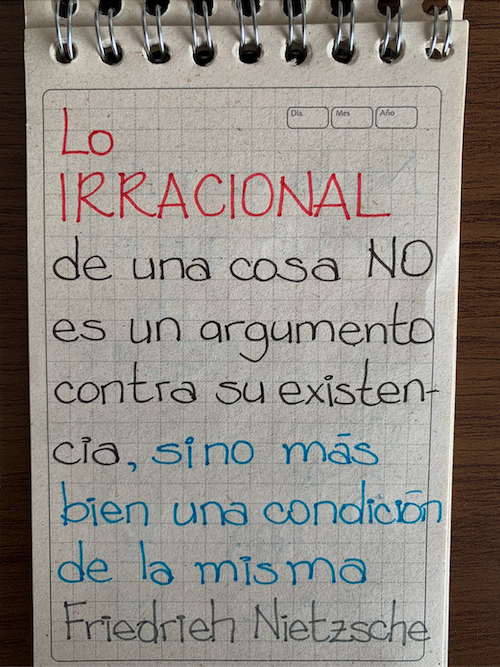 Día Mes Año
Lo
IRRACIONAL
de una cosa NO
es un argumento
contra su existen-
cia, sino más
bien una condición
de la misma
Friedrich Nietzsche